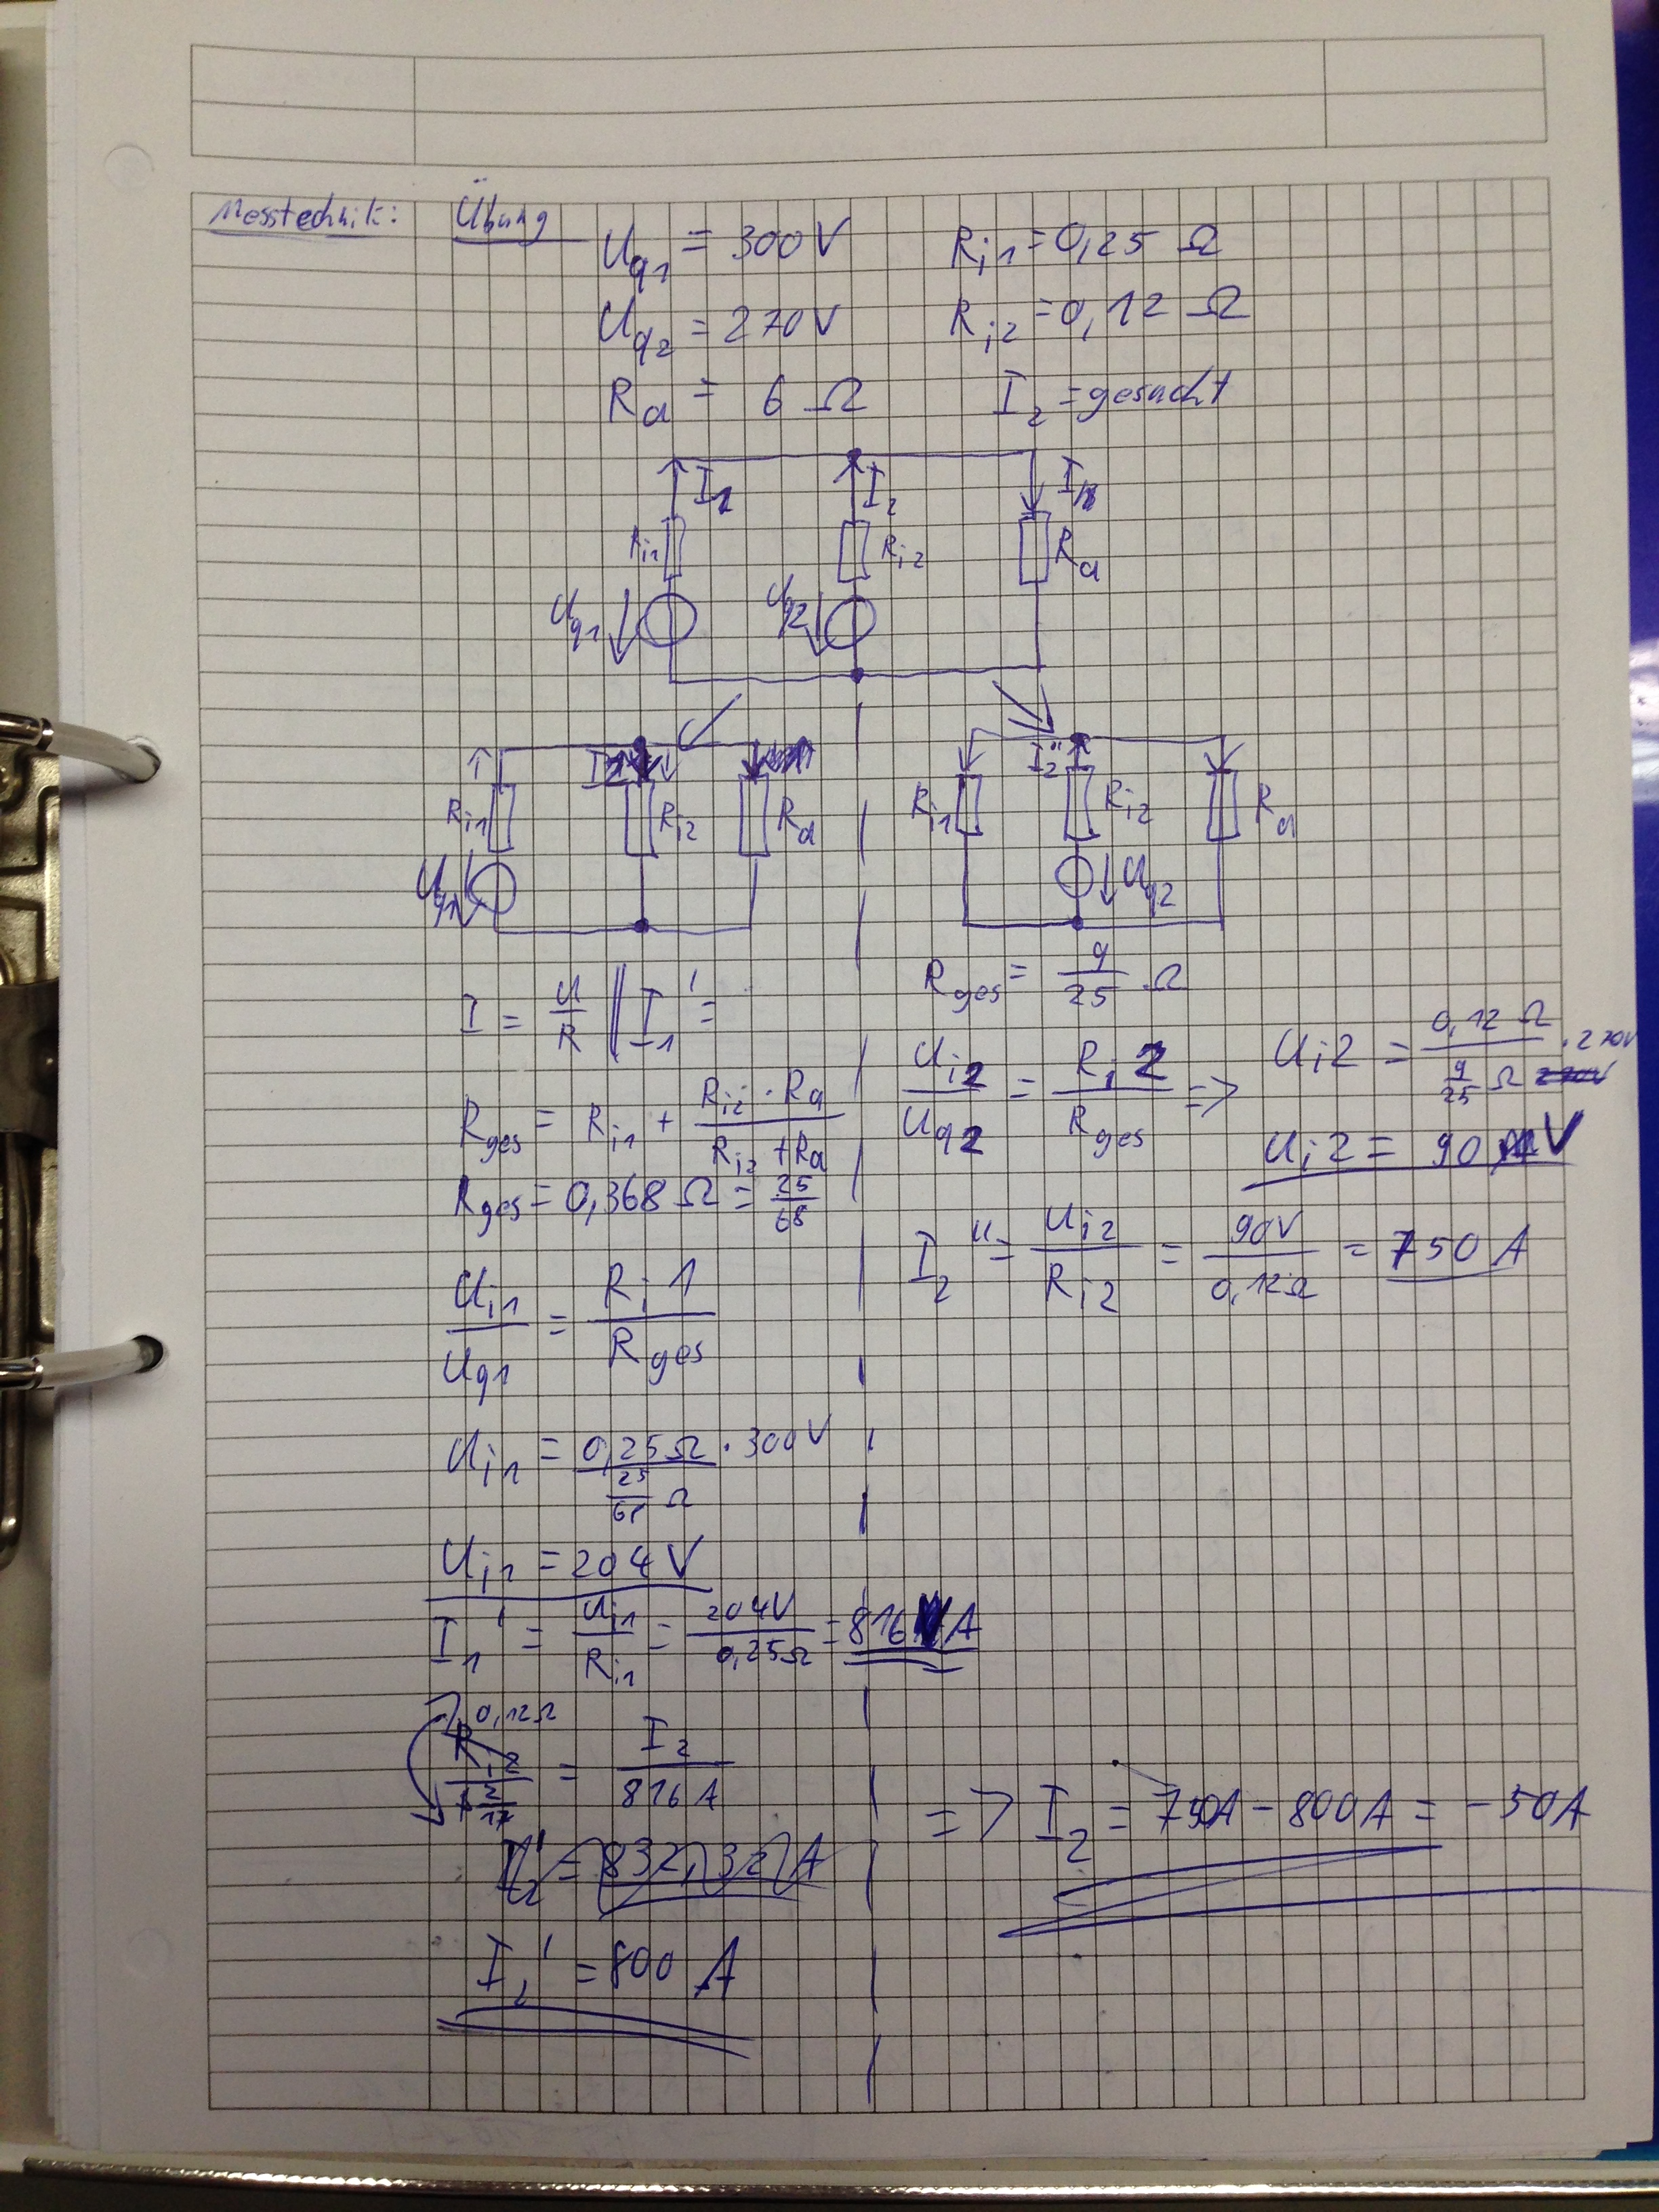 Messtechnik: Übung
Uq1 = 300V Ri1 = 0,25 Ω
Uq2 = 270V Ri2 = 0,12 Ω
Ra = 6 Ω I2 = gesucht
I1 I2 I
Ri1 Ri2 Ra
Uq1 Uq2
I2''
Ri1 Ri2 Ra
Uq1
Ri1 Ri2 Ra
Uq2
I = U/R || I1' =
Rges = Ri1 + (Ri2 · Ra)/(Ri2 + Ra)
Rges = 0,368 Ω = 25/68
Ui1/Uq1 = Ri1/Rges
Ui1 = 0,25Ω/(25/68 Ω) · 300V
Ui1 = 204 V
I1' = Ui1/Ri1 = 204V/0,25Ω = 816 A
0,12Ω
= I2/816 A
I2' = 832,32 A
I2' = 800 A
Rges = 9/25 Ω
Ui2/Uq2 = Ri2/Rges => Ui2 = 0,12 Ω/(9/25 Ω) · 270V
Ui2 = 90 V
I2'' = Ui2/Ri2 = 90V/0,12Ω = 750 A
=> I2 = 750A - 800A = -50A